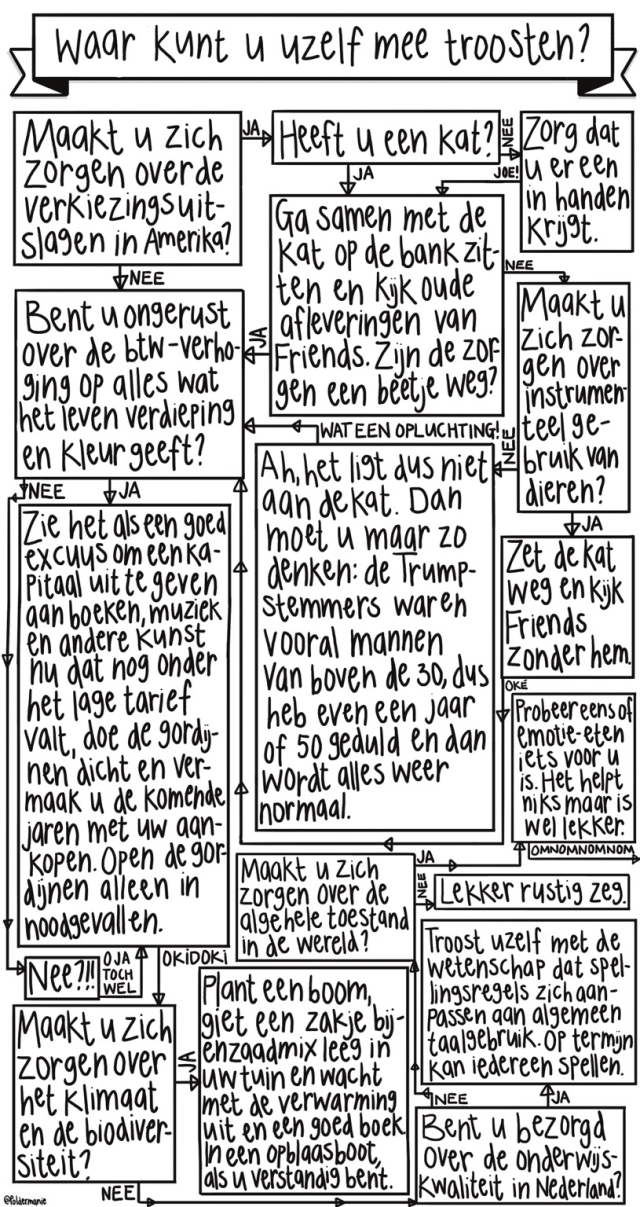 Waar kunt u uzelf mee troosten?
Maakt u zich
zorgen over de
verkiezingsuit-
slagen in Amerika?
JA
Heeft u een kat?
NEE
Zorg dat
u er een
in handen
krijgt.
JOE!
JA
NEE
Ga samen met de
kat op de bank zit-
ten en kijk oude
afleveringen van
Friends. Zijn de zor-
gen een beetje weg?
NEE
JA
Maakt u
zich zor-
gen over
instrumen-
teel ge-
bruik van
dieren?
Bent u ongerust
over de btw-verho-
ging op alles wat
het leven verdieping
en kleur geeft?
WAT EEN OPLUCHTING!
NEE
Ah, het ligt dus niet
aan de kat. Dan
moet u maar zo
denken: de Trump-
stemmers waren
vooral mannen
van boven de 30, dus
heb even een jaar
of 50 geduld en dan
wordt alles weer
normaal.
JA
Zet de kat
weg en kijk
Friends
zonder hem.
OKÉ
NEE
JA
Zie het als een goed
excuus om een ka-
pitaal uit te geven
aan boeken, muziek
en andere kunst
nu dat nog onder
het lage tarief
valt, doe de gordij-
nen dicht en ver-
maak u de komende
jaren met uw aan-
kopen. Open de gor-
dijnen alleen in
noodgevallen.
Probeer eens of
emotie-eten
iets voor u
is. Het helpt
niks maar is
wel lekker.
OMNOMNOMNOM
Maakt u zich
zorgen over de
algehele toestand
in de wereld?
JA
NEE
Lekker rustig zeg.
Nee?!!
O JA
TOCH
WEL
OKIDOKI
Troost uzelf met de
wetenschap dat spel-
lingsregels zich aan-
passen aan algemeen
taalgebruik. Op termijn
kan iedereen spellen.
Maakt u zich
zorgen over
het klimaat
en de biodiver-
siteit?
JA
Plant een boom,
giet een zakje bij-
enzaadmix leeg in
uw tuin en wacht
met de verwarming
uit en een goed boek.
In een opblaasboot,
als u verstandig bent.
NEE
JA
Bent u bezorgd
over de onderwijs-
kwaliteit in Nederland?
NEE
@foldermanie